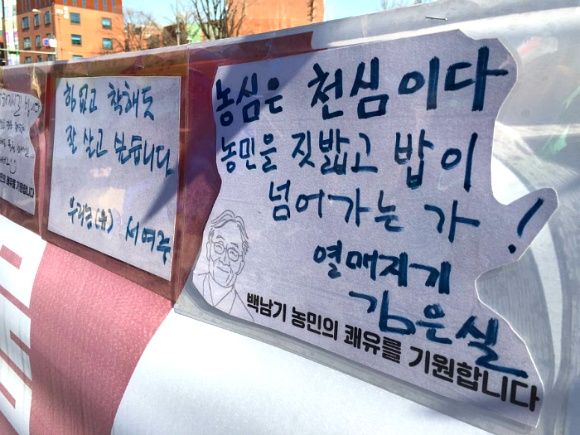 힘없고 착해도
잘 살고 싶습니다
서여주
농심은 천심이다
농민을 짓밟고 밥이
넘어가는가!
열매지기
김은실
백남기 농민의 쾌유를 기원합니다